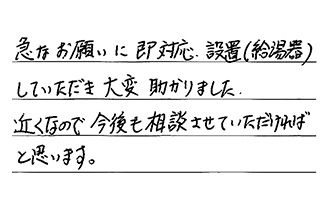 急なお願いに即対応.設置(給湯器)
していただき大変助かりました.
近くなので今後も相談させていただければ
と思います。